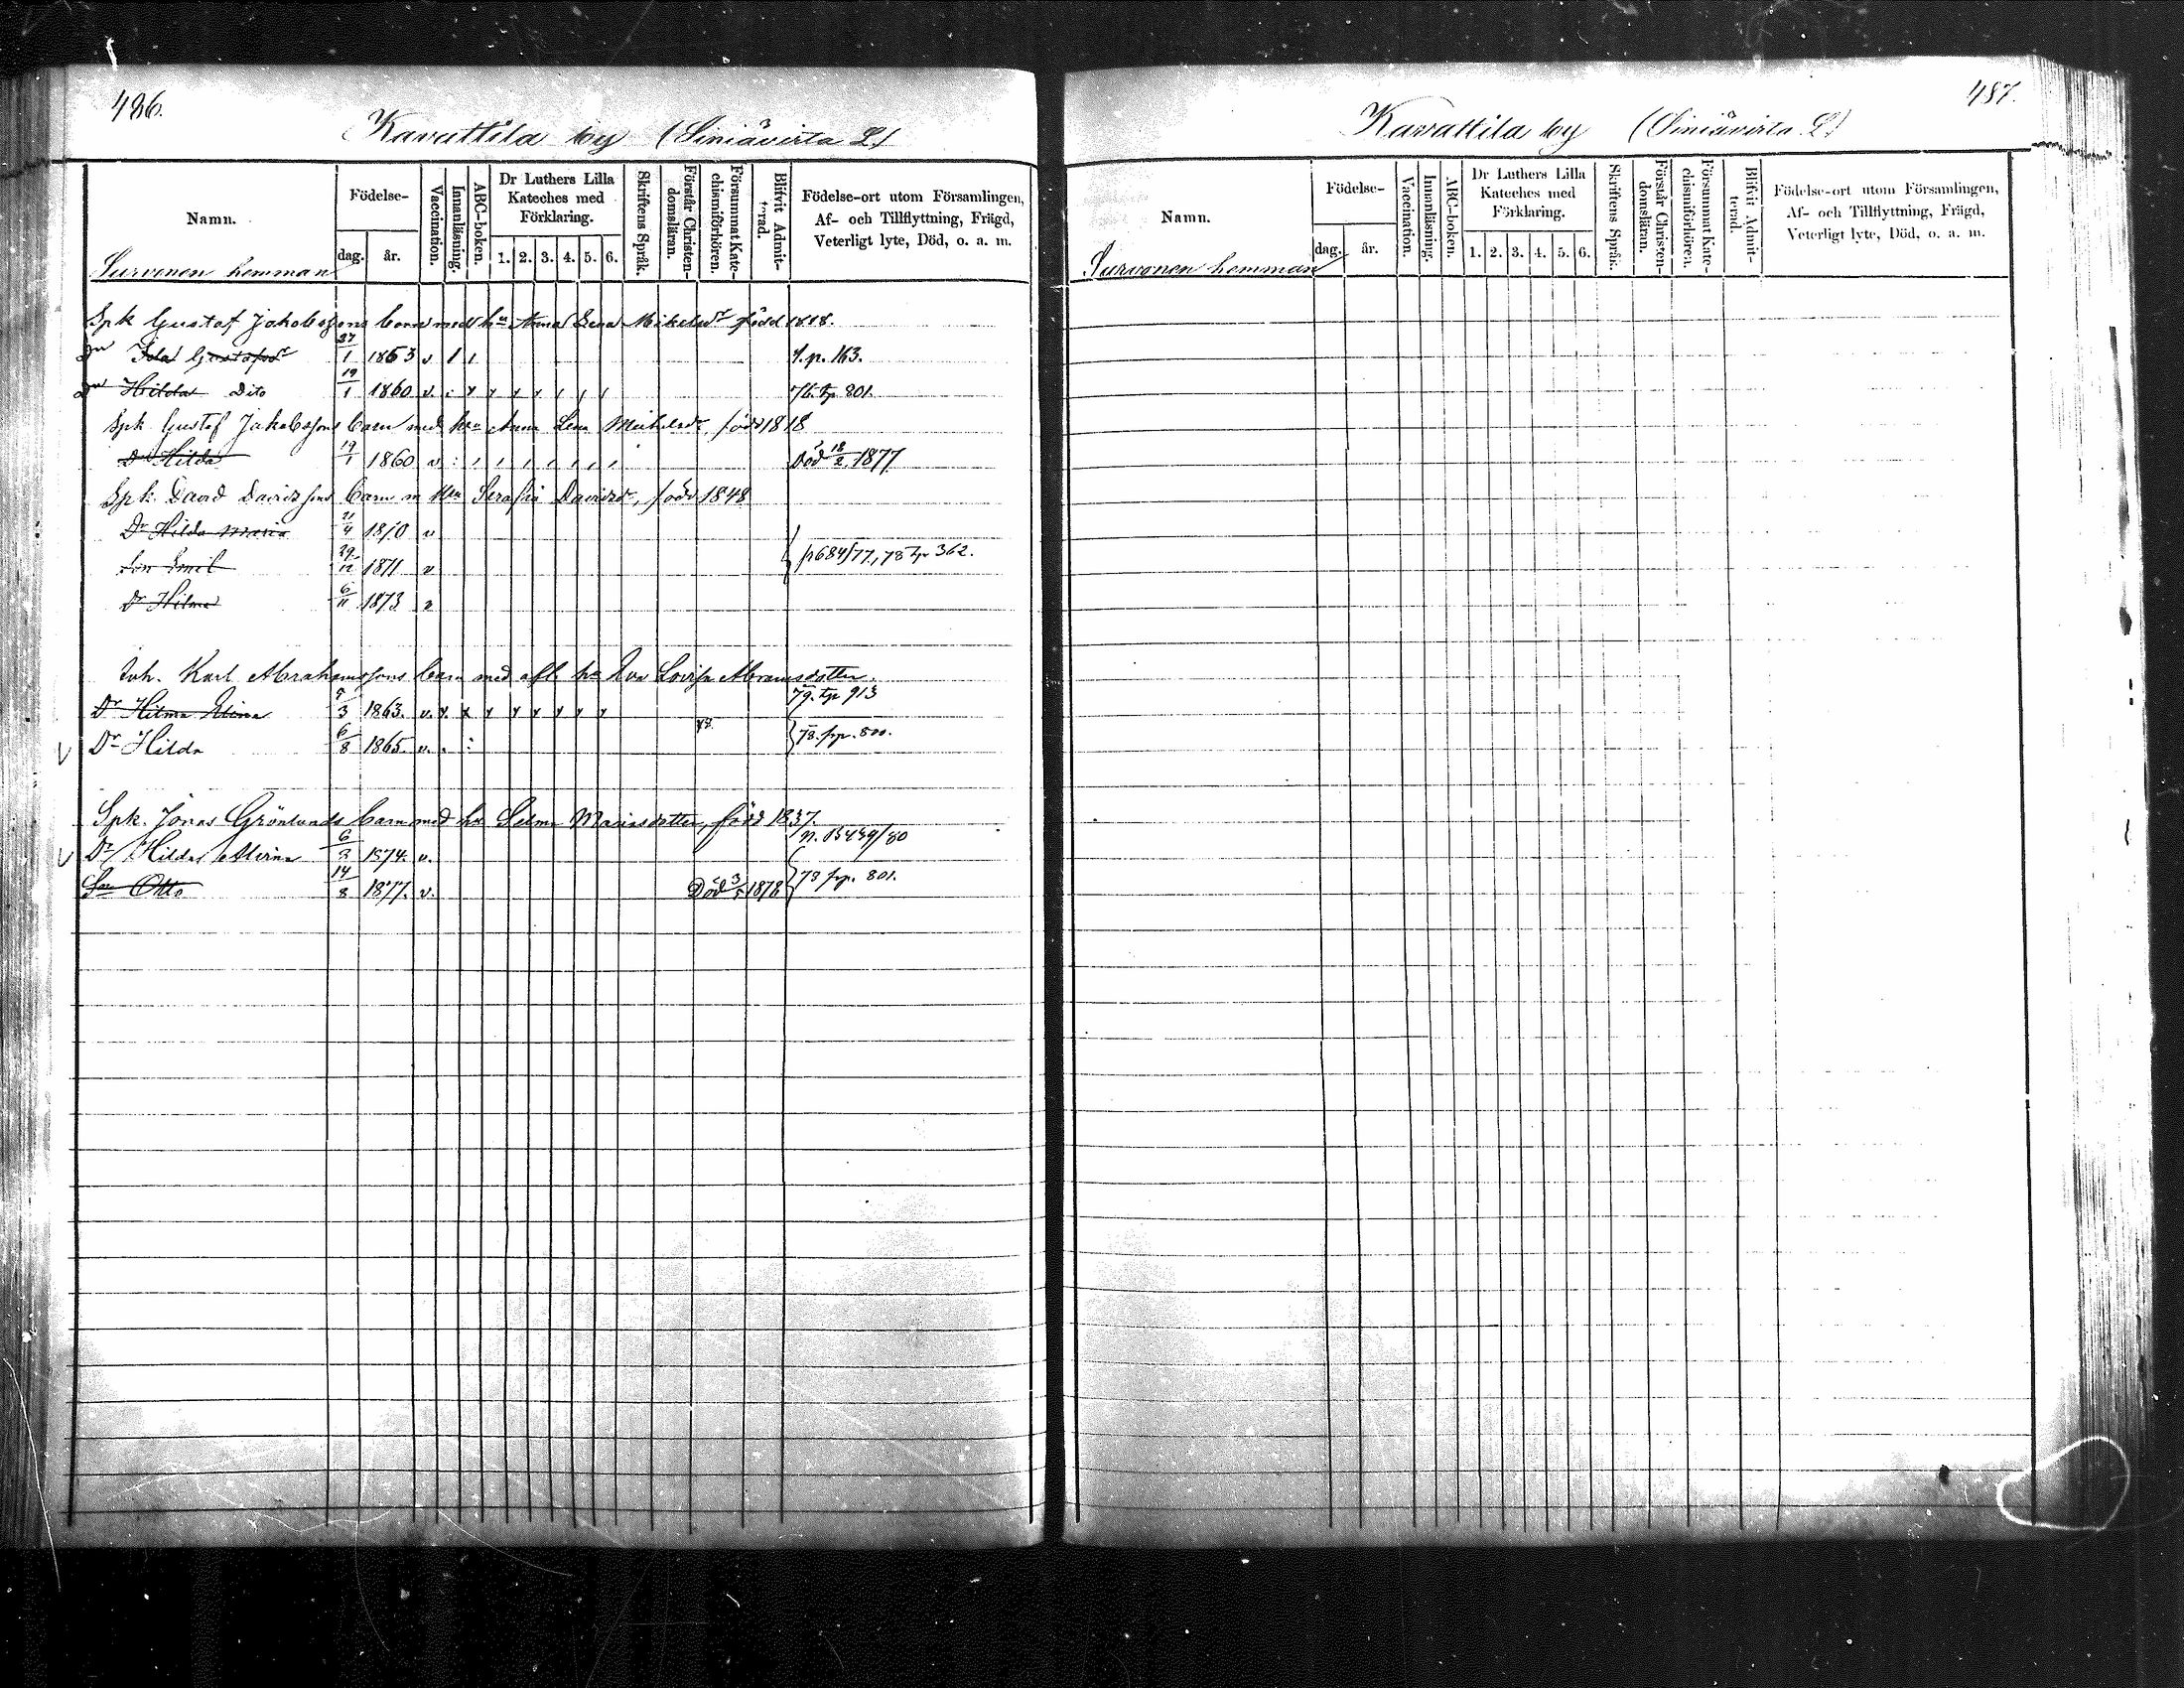 486.
Kavattila by (Siniävirta L)
Namn.
Födelse-
dag. år.
Vaccination.
Innanläsning.
ABC-boken.
Dr Luthers Lilla Kateches med Förklaring.
1. 2. 3. 4. 5. 6.
Skriftens Språk.
Förstår Christen-domsläran.
Försummat Kate-chismiförhören.
Blifvit Admit-terad.
Födelse-ort utom Församlingen, Af- och Tillflyttning, Frägd, Veterligt lyte, Död, o. a. m.
Survonen hemman
Spk Gustaf Jakobssons barn med hu Anna Lena Mikelsdr född 1818.
Dr Ida Gustafsdr 27/1 1863 v / / p. 163.
Dr Hilda Dito 19/1 1860 v. 801.
Spk Gustaf Jakobssons barn med hru Anna Lena Mickelsdr, född 1818
Dr Hilda 19/1 1860 v Död 18/2 1877
Spk. David Davidssons barn m hru Serafia Davidsdr, född 1848
Dr Hilda Maria 21/4 1870 v
Son Emil 29/12 1871 v p684/77, 78 tp 362.
Dr Hilma 6/11 1873 v
Inh. Karl Abrahamssons barn med afl. hu Eva Lovisa Abramsdotter.
Dr Hilma Elina 7/3 1863. v. 79. tp 913
Dr Hilda 6/8 1865 v. 78 78. frp. 800.
Spk. Jonas Grönlunds barn med hu Selma Mariasdotter, född 1837.
Dr Hilda Alvina 6/2 1874. v. n. B439/80
Son Otto 14/8 1877. v. Död 3/5 1878 78 frp. 801.
487.
Kavattila by (Siniävirta L)
Namn.
Födelse-
dag. år.
Vaccination.
Innanläsning.
ABC-boken.
Dr Luthers Lilla Kateches med Förklaring.
1. 2. 3. 4. 5. 6.
Skriftens Språk.
Förstår Christen-domsläran.
Försummat Kate-chismiförhören.
Blifvit Admit-terad.
Födelse-ort utom Församlingen, Af- och Tillflyttning, Frägd, Veterligt lyte, Död, o. a. m.
Survonen hemman